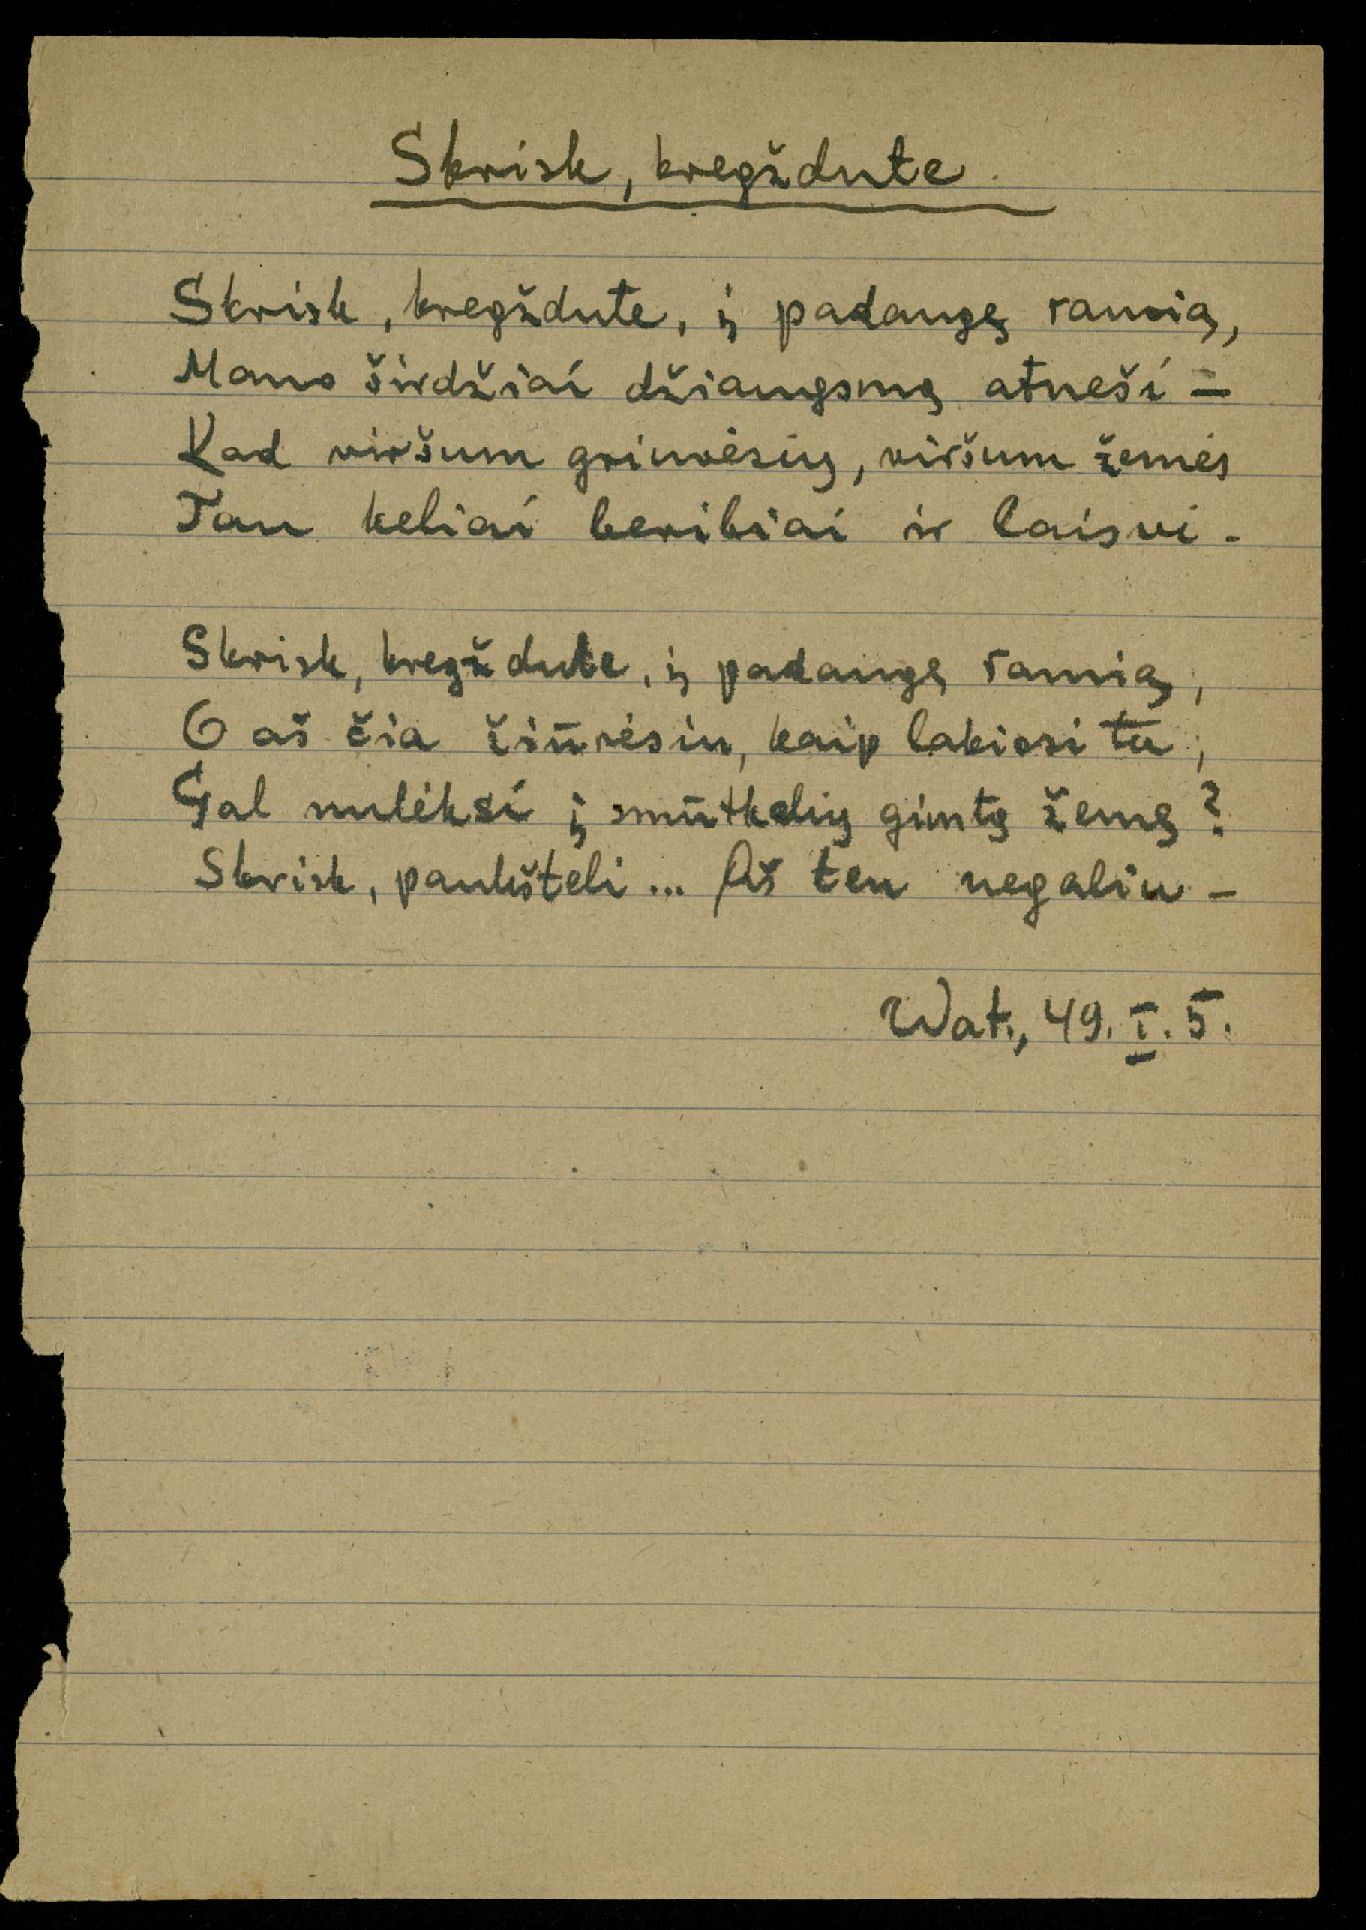 Skrisk, kregždute
Skrisk, kregždute, į padangę ramią,
Mano širdžiai džiaugsmą atneši —
Kad viršum griuvėsių, viršum žemės
Tau keliai beribiai ir laisvi -
Skrisk, kregždute, į padangę ramią,
O aš čia žiūrėsiu, kaip lakiosi tu,
Gal nulėksi į smūtkelių gimtą žemę?
Skrisk, paukšteli... Aš ten negaliu -
Wat., 49. I. 5.